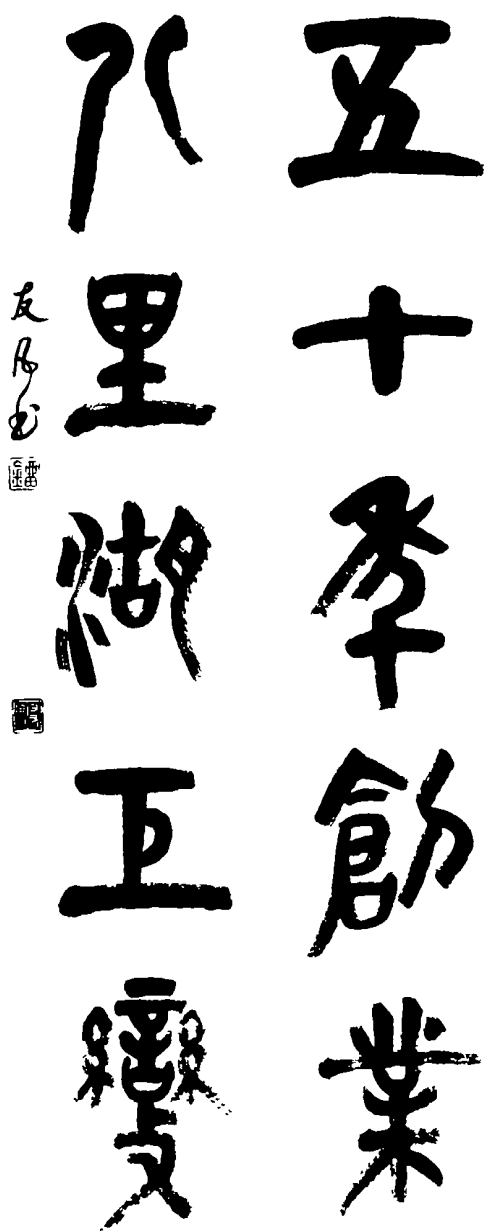 五十年創業
八里湖巨變
友 书